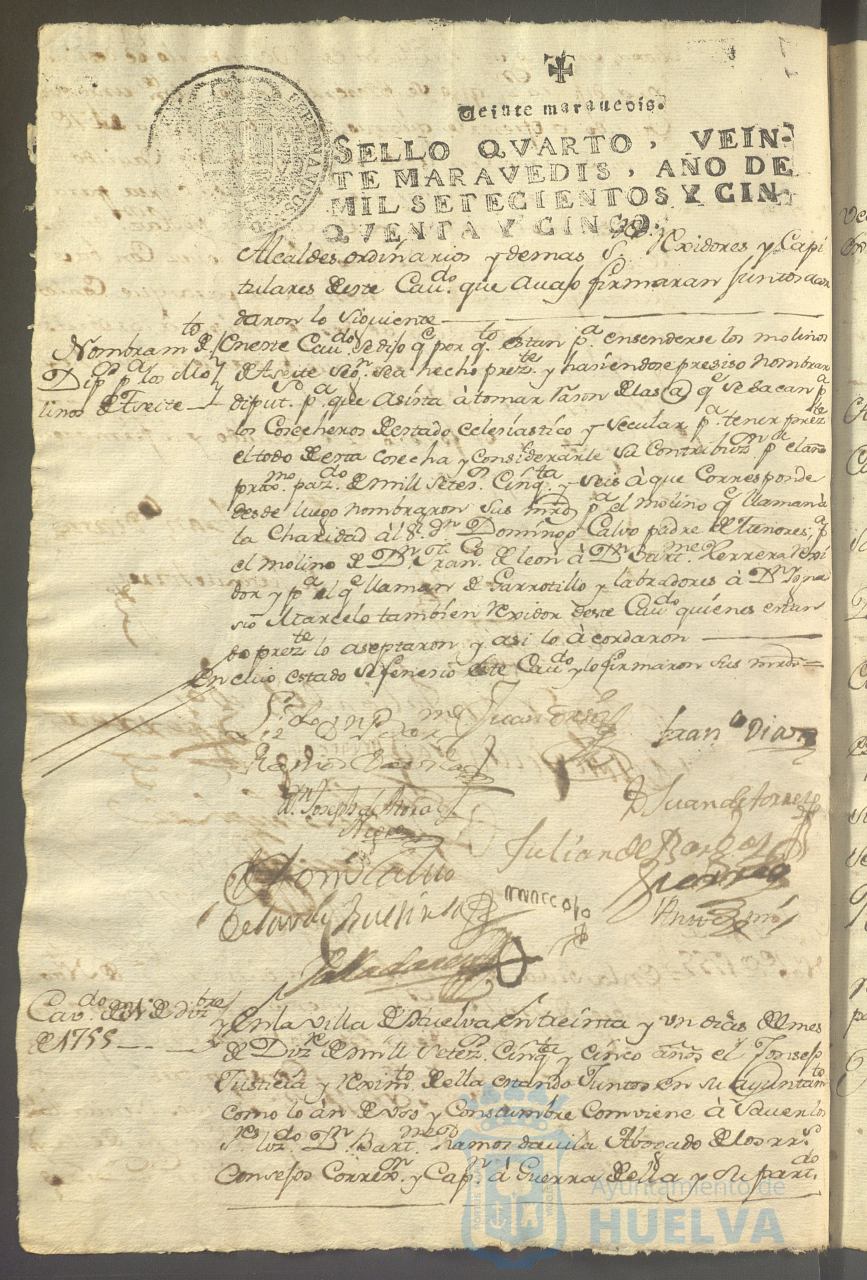 Veinte maravedis.
SELLO QVARTO, VEIN-
TE MARAVEDIS, AÑO DE
MIL SETECIENTOS Y CIN-
QVENTA Y CINCO.
FERDINANDUS
Alcaldes ordinarios y demas S.res Rexidores y Capi
tulares deste Cav.do que avajo firmaran juntos acor
daron lo siguiente
Nombram.to de
Dip.dos p.a los Mo
linos de Aseite
En este Cav.do se dijo q.e por q.to estan p.a ensenderse los molinos
de Aseite seg.n sea hecho prez.te y haviendose presiso nombrar
diput.s p.a que asista à tomar rason de las @ q.e se sacan p.a
los Cosecheros de estado eclesiastico y secular p.a tener prez.te
el todo desta cosecha y considerarle su contribuz.on p.a el año
prox.mo de mill seteз.s cinq.ta y seis à que corresponde
desde luego nombraron sus mrds p.a el molino q.e llaman de
la Charidad àl S.r D.n Domingo Calvo padre de Menores, p.a
el molino de D.n Fran.co de leon à D.n Bart.me Herrera Rexi
dor y p.a el q.e llaman de Garrotillo y labradores à D.n Igna
sio Marcelo tambien Rexidor deste Cav.do quienes estan
do prez.te lo aseptaron y asi lo àcordaron
En cuio estado se fenesio este Cav.do y lo firmaron sus mrds =
Juan
Juan Diaz
Ramos Davila
D.n Joseph de Mora
Negro
D Juan de Torres
Julian de
Dom.o Calvo
Marcelo
Cav.do de 31 de diz.bre
de 1755
En la villa de Huelva en treinta y un dias del mes
de Diz.re de mill setez.s cinq.ta y cinco años el Consejo
Justicia y Rexim.to della estando Juntos en su ayuntam.to
como lo àn de uso y Constumbre Comviene à Saver los
S.res liz.do D.n Bart.meo Ramos davila Abogado de los rr.s
Consejos Correx.or y Cap.n à Guerra della y su part.do
Ayuntamiento de
HUELVA